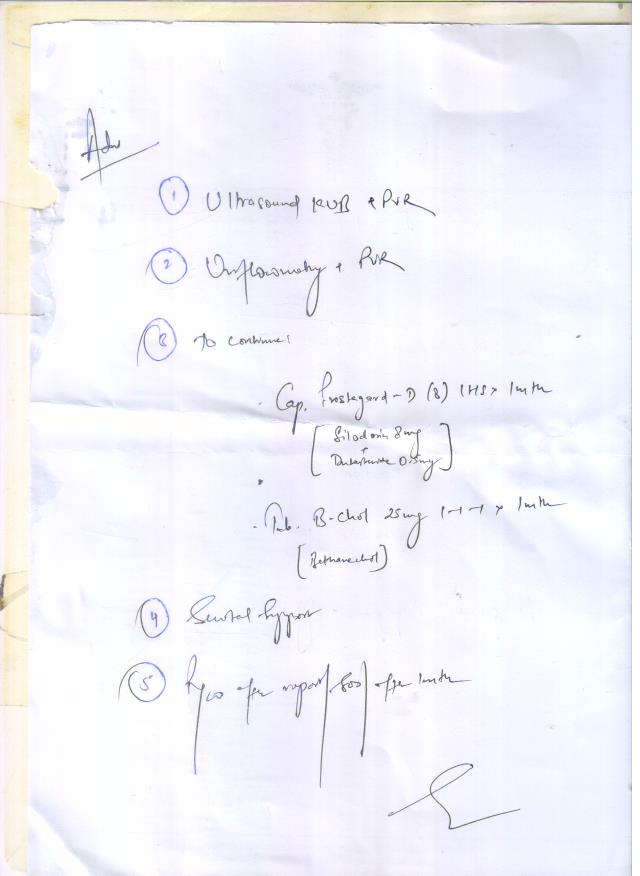 Adv
① Ultrasound KUB + PVR
② Uroflowmetry + PVR
③ To continue:
. Cap. Prostagard-D (8) 1HS x 1mth
[Silodosin 8mg
+
Dutasteride 0.5mg]
. Tab. B-Chol 25mg 1-1-1 x 1mth
[Bethanechol]
④ Scrotal Support
⑤ after report / SOS / after 1mth